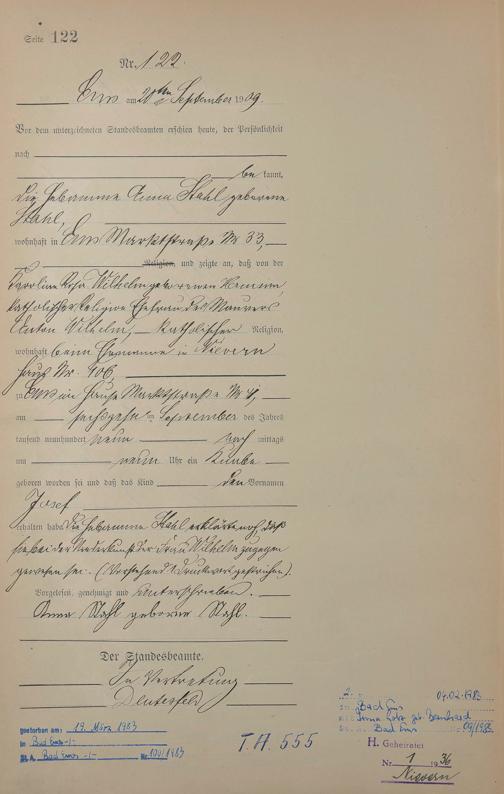 Seite 122
Nr. 122.
Ems am 20ten September 1909.
Vor dem unterzeichneten Standesbeamten erschien heute, der Persönlichkeit
nach
be kannt,
die Hebamme Anna Stahl geborene
Stahl,
wohnhaft in Ems Marktstraße Nr 33,
Religion, und zeigte an, daß von der
Karoline Wilhelm geborenen
katholischer Religion Ehefrau des Maurers
Anton Wilhelm, katholischer Religion,
wohnhaft beim Ehemanne in Nievern
Haus Nr. 106,
zu Ems im Hause Marktstraße Nr 4,
am sechszehn ten September des Jahres
tausend neunhundert neun nach mittags
um neun Uhr ein Knabe
geboren worden sei und daß das Kind den Vornamen
Josef
erhalten habe. Die Hebamme Stahl erklärte noch, daß
sie bei der Niederkunft der Frau Wilhelm zugegen
gewesen sei. (Vorstehend 1 Druckwort gestrichen).
Vorgelesen, genehmigt und unterschrieben.
Anna Stahl geborene Stahl.
Der Standesbeamte.
In Vertretung
gestorben am: 19. März 1983
in Bad Ems -/-
St. A. Bad Ems -/- Nr. 100/1983
T.H. 555
2.
04.02.1983
Bad Ems
geb.
Bad Ems Nr. 09/1983
H. Geheiratet
Nr. 1 1936
Nievern